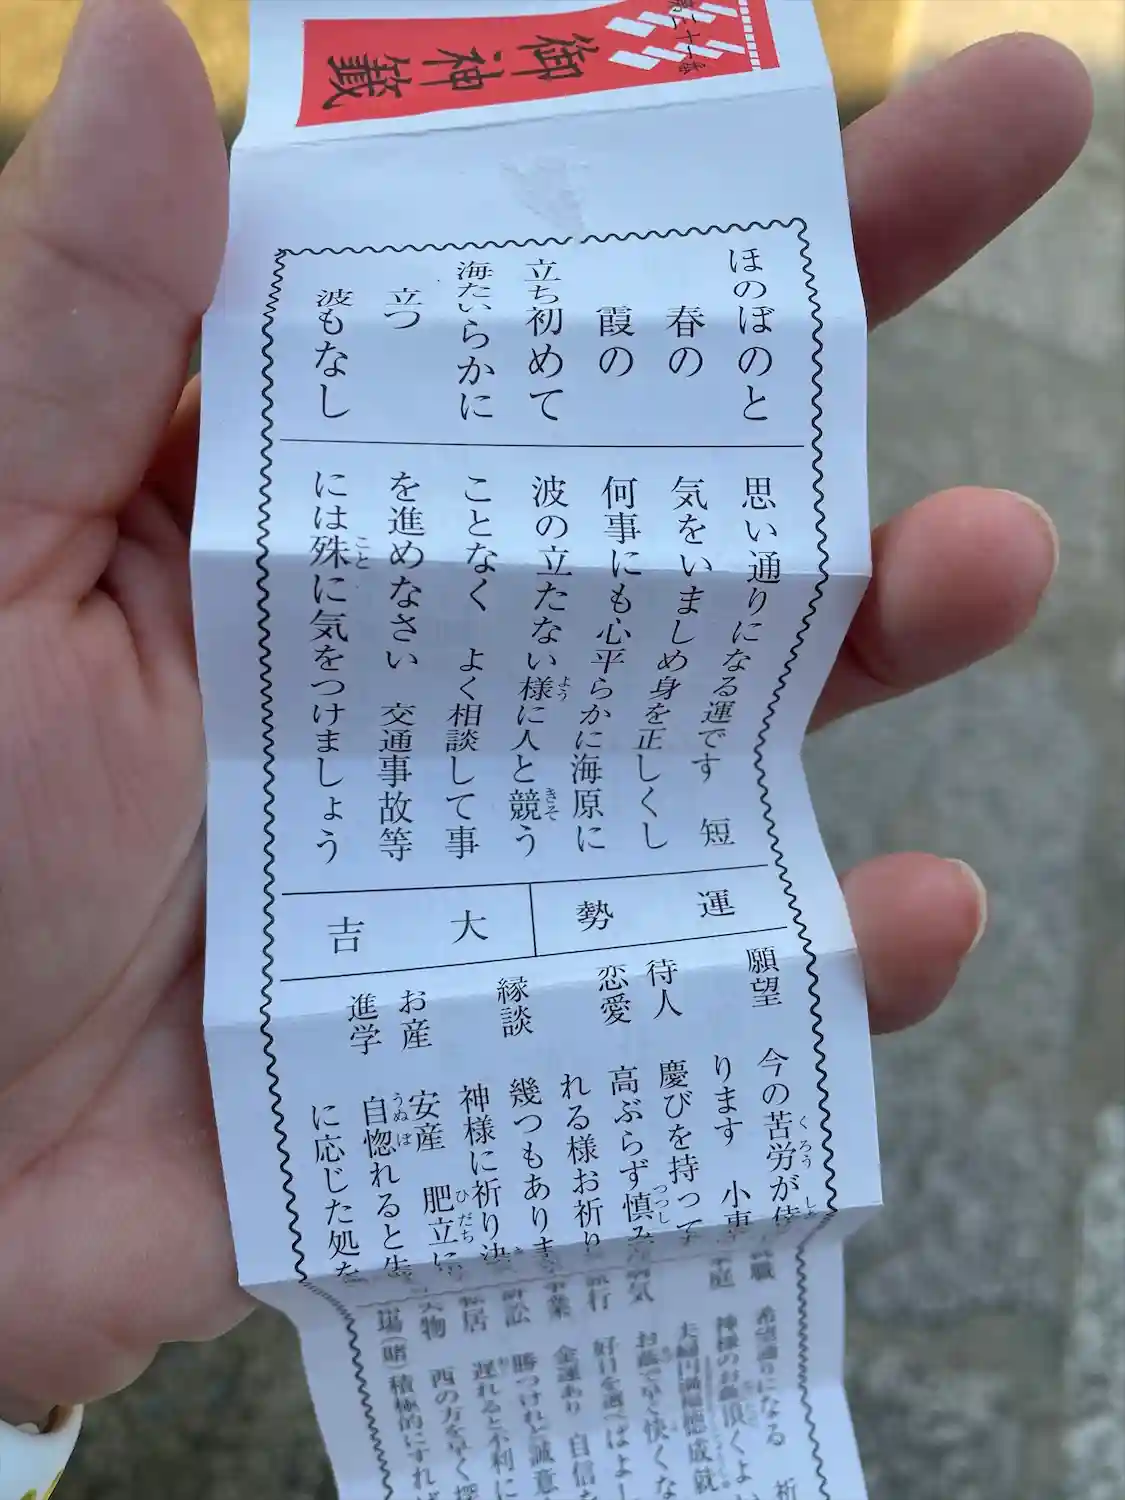 御神籤
ほのぼのと
春の
霞の
立ち初めて
海たいらかに
立つ
波もなし
思い通りになる運です 短
気をいましめ身を正しくし
何事にも心平らかに海原に
波の立たない様に人と競う
ことなく よく相談して事
を進めなさい 交通事故等
には殊に気をつけましょう
運勢
大吉
願望 今の苦労が
ります 小事
待人 慶びを持って
恋愛 高ぶらず慎み
れる様お祈り
縁談 幾つもありま
神様に祈り決
お産 安産 肥立に
進学 自惚れると失
に応じた処を
希望通りになる 祈
神様のお蔭頂くよい
夫婦円満
病気 お蔭で早く快くな
旅行 好日を選べばよし
事業 金運あり 自信を
訴訟 勝つけれど誠意
転居 遅れると不利に
失物 西の方を早く探
相場(賭)積極的にすれば